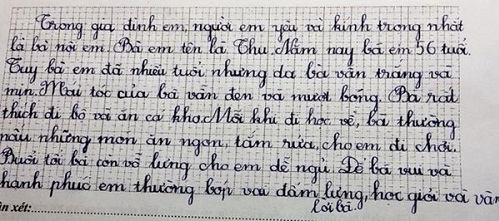 Trong gia đình em, người em yêu và kính trọng nhất
là bà nội em. Bà em tên là Thu. Năm nay bà em 56 tuổi.
Tuy bà em đã nhiều tuổi nhưng da bà vẫn trắng và
mịn. Màu tóc của bà vẫn đen và mượt bóng. Bà rất
thích đi bộ và ăn cá kho. Mỗi khi đi học về, bà thường
nấu những món ăn ngon, tắm rửa, cho em đi chơi.
Buổi tối bà còn vỗ lưng cho em dễ ngủ. Để bà vui và
hạnh phúc em thường bóp vai đấm lưng, học giỏi và vâ
lời bà.
ận xét: